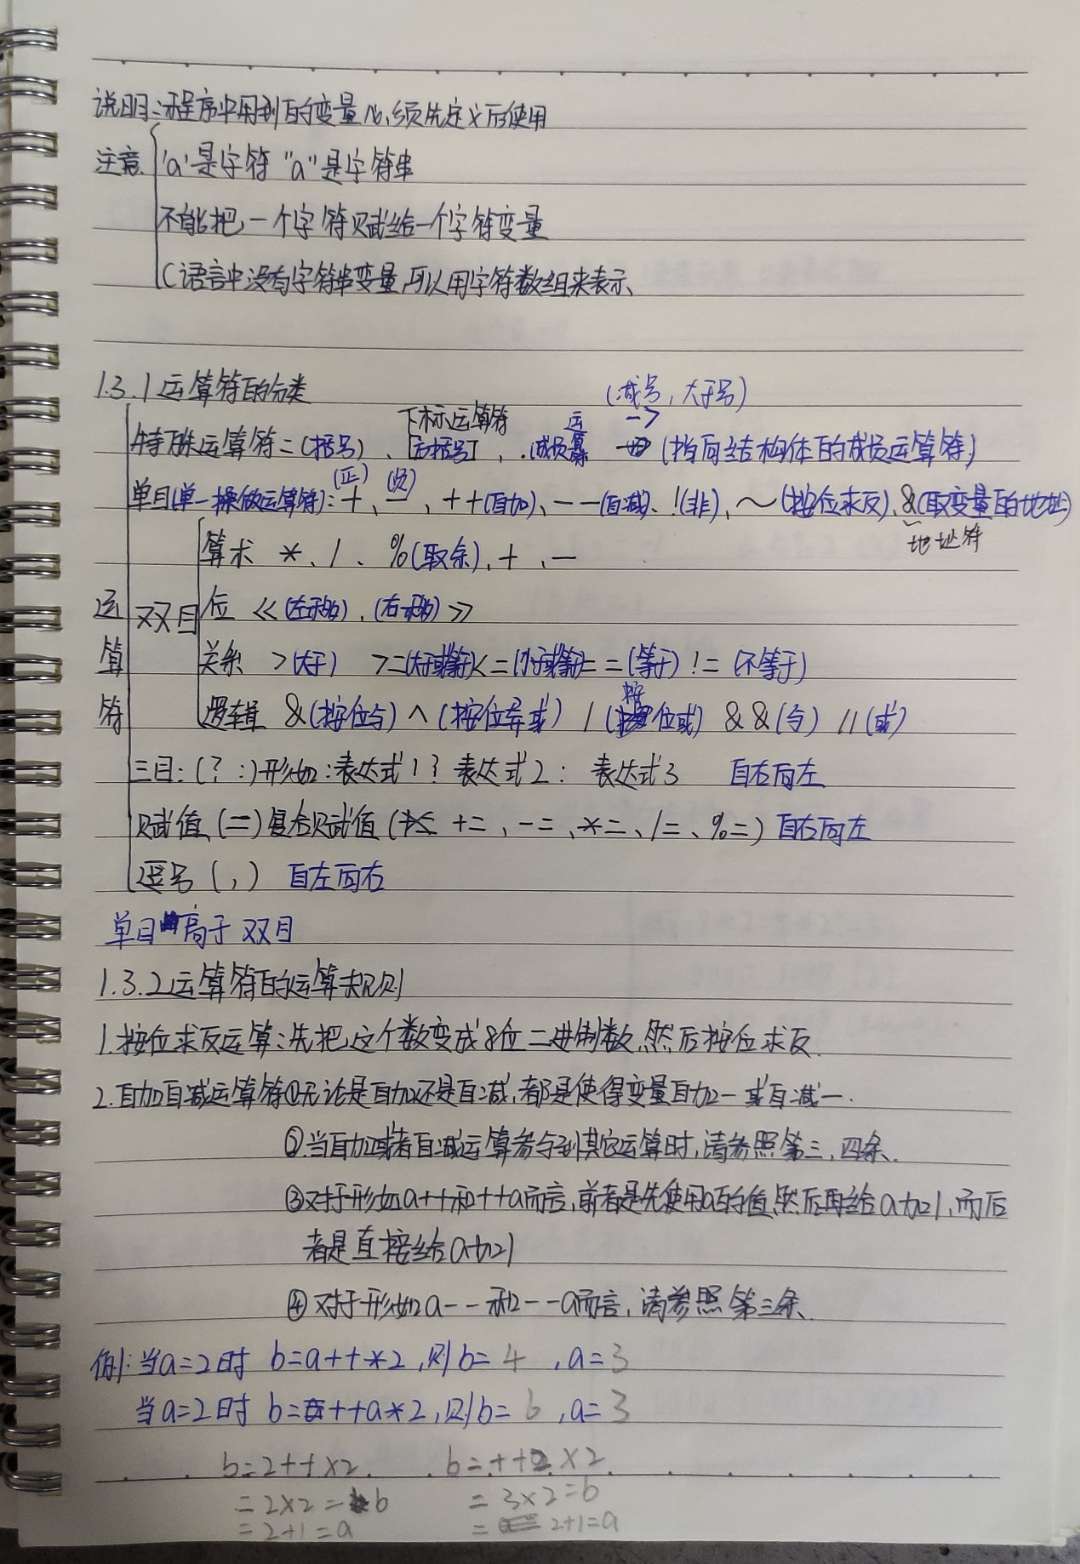 说明:程序中用到的变量必须先定义后使用
注意 'a'是字符 "a"是字符串
不能把一个字符赋给一个字符变量
C语言中没有字符串变量,可以用字符数组来表示、
1.3.1运算符的分类
(减号,大于号)
下标运算符 运 ->
特殊运算符=(括号)、[右括号],.(成员算 (指向结构体的成员运算符)
(正) (负)
单目(单一操做运算符):+、一,++(自加)、--(自减)、!(非),~(按位求反),&(取变量的地址)
地址符
算术 *、/、%(取余),+,一
运算符
双目
位 <<(左移),(右移)>>
关系 >(大于) >=(大于或等于)<=(小于或等于)==(等于) !=(不等于)
按
逻辑 &(按位与)∧(按位异或) | (位或) &&(与) ||(或)
三目:(? :)形如:表达式1? 表达式2: 表达式3 自右向左
赋值(=)复合赋值( +=、-=、*=、/=、%=)自右向左
逗号(,) 自左向右
单目高于双目
1.3.2运算符的运算规则
1.按位求反运算:先把这个数变成8位二进制数,然后按位求反.
2.自加自减运算符①无论是自加还是自减,都是使得变量自加一或自减一.
②当自加或者自减运算参与到其它运算时,请参照第三,四条.
③对于形如a++和++a而言,前者是先使用a的值,然后再给a加1,而后
者是直接给a加1
④对于形如a--和--a而言,请参照第三条.
例:当a=2时 b=a++*2,则b=4,a=3
当a=2时 b=++a*2,则b=6,a=3
b=2++×2. b=++2×2.
=2×2=b =3×2=b
=2+1=a = 2+1=a